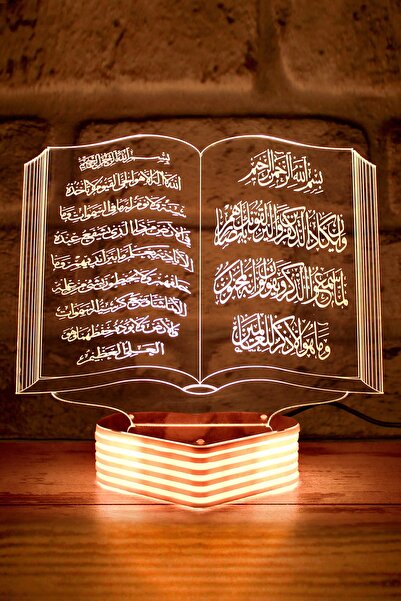 بسم الله الرحمن الرحيم
وإن يكاد الذين كفروا ليزلقونك بأبصارهم
لما سمعوا الذكر ويقولون إنه لمجنون
وما هو إلا ذكر للعالمين
بسم الله الرحمن الرحيم
الله لا إله إلا هو الحي القيوم لا تأخذه
سنة ولا نوم له ما في السموات وما
في الأرض من ذا الذي يشفع عنده
إلا بإذنه يعلم ما بين أيديهم وما
خلفهم ولا يحيطون بشيء من علمه
إلا بما شاء وسع كرسيه السموات
والأرض ولا يؤده حفظهما وهو
العلي العظيم